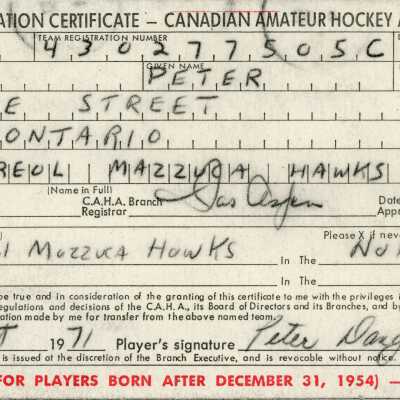 ATION CERTIFICATE – CANADIAN AMATEUR HOCKEY A
TEAM REGISTRATION NUMBER
430277505C
GIVEN NAME
PETER
E STREET
ONTARIO
REOL MAZZUCA HAWKS
(Name in Full)
C.A.H.A. Branch
Registrar
Date
Appr
Please X if neve
MOZZUCA HOWKS
In The
In The
be true and in consideration of the granting of this certificate to me with the privileges i
egulations and decisions of the C.A.H.A., its Board of Directors and its Branches, and by
tion made by me for transfer from the above named team.
1971 Player's signature Peter
is issued at the discretion of the Branch Executive, and is revocable without notice.
FOR PLAYERS BORN AFTER DECEMBER 31, 1954) –